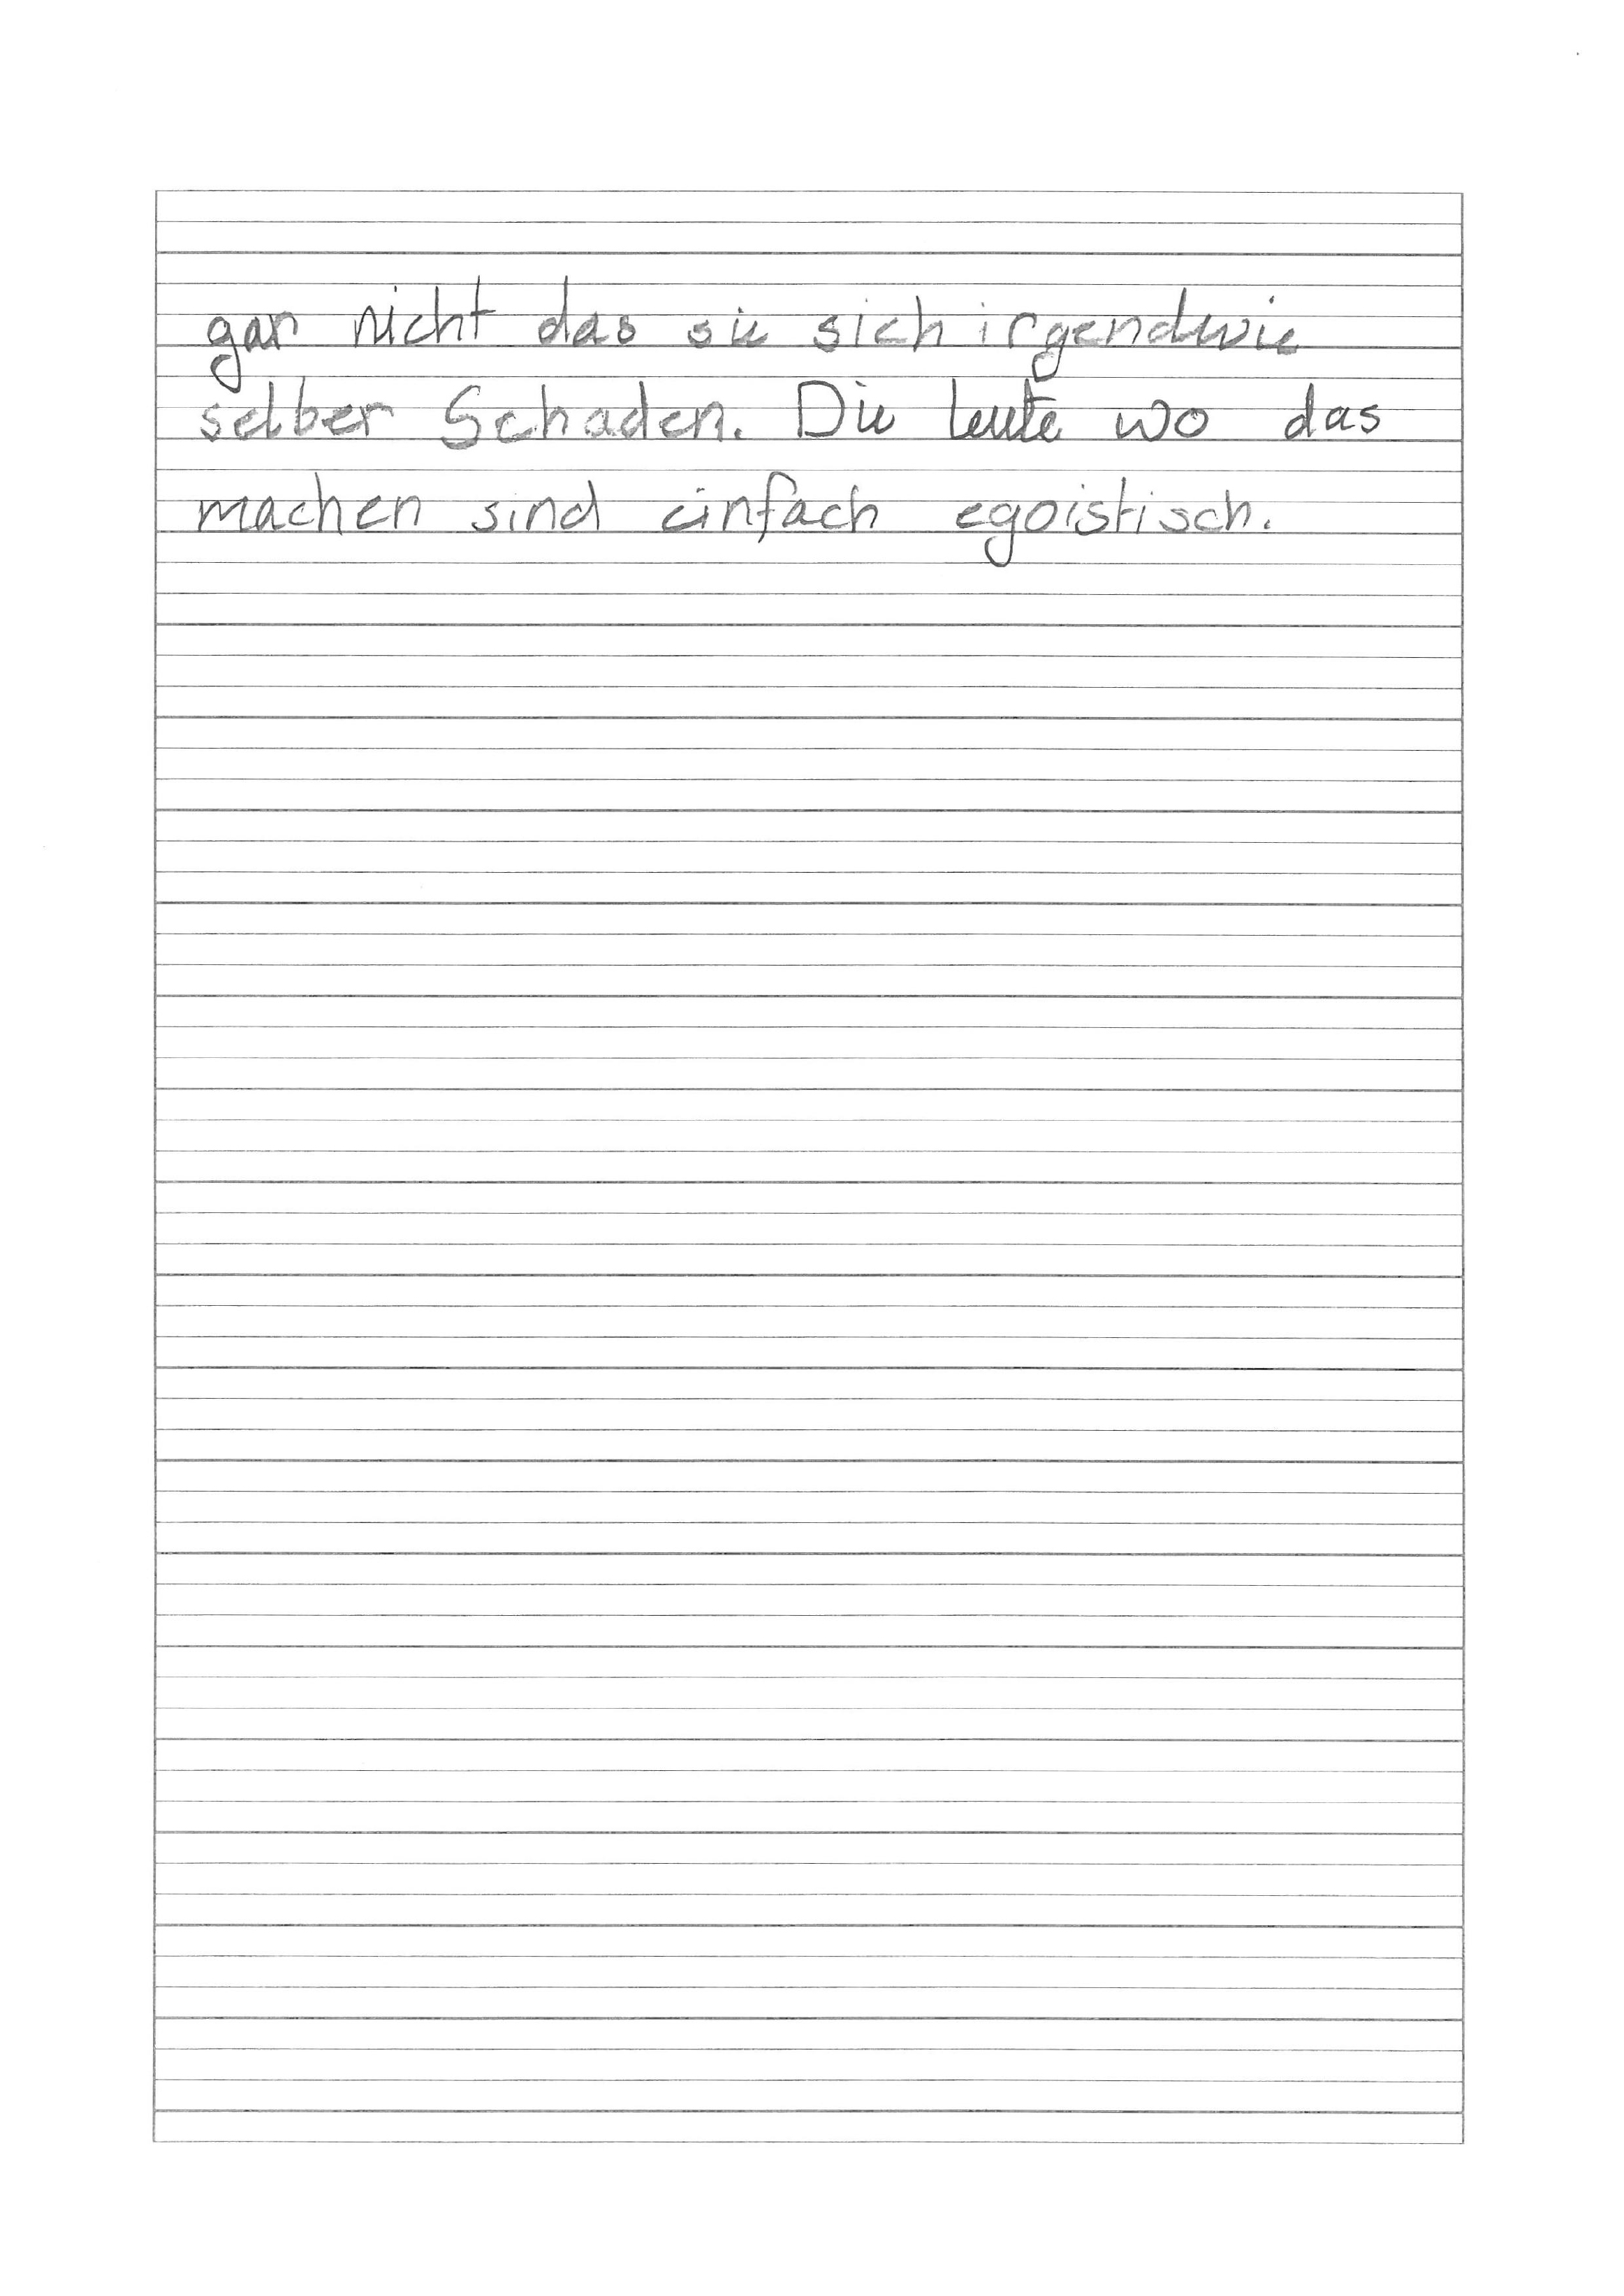 gar nicht das sie sich irgendwie
selber Schaden. Die leute wo das
machen sind einfach egoistisch.